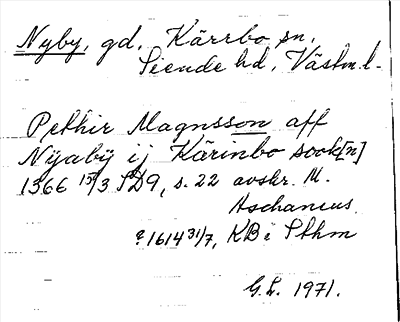 Nyby, gd, Kärrbo sn,
Siende hd, Västm.l.
Pethir Magnsson aff
Nyaby ij Kärinbo sook[n]
1366 15/3 SD9, s. 22 avskr. M.
Aschaneus
?1614 31/7, KB i Sthm
G.L. 1971.